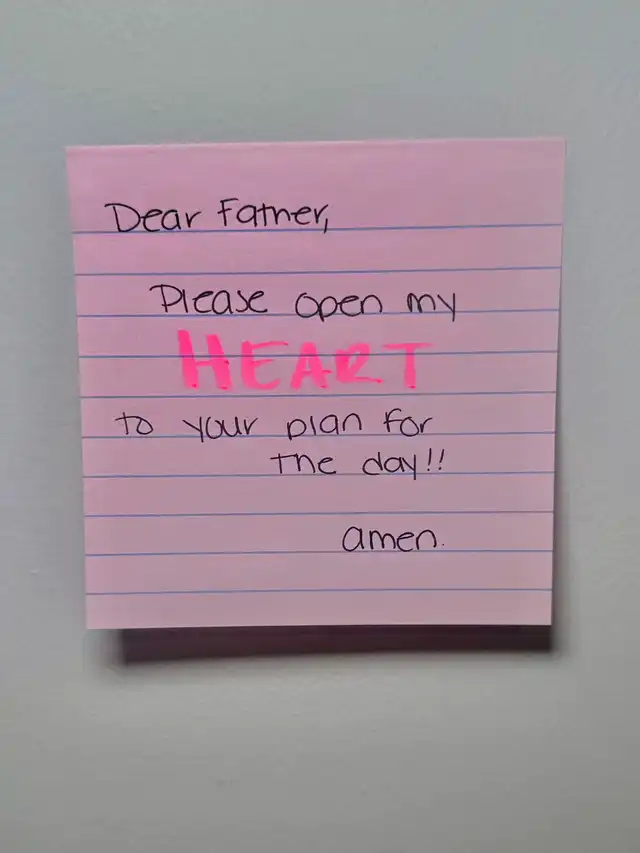 Dear Father,
Please open my
HEART
to your plan for
the day!!
amen.